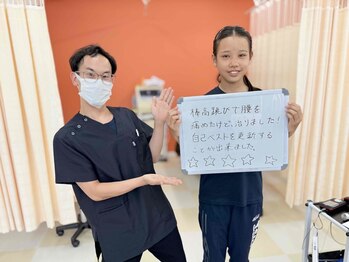 棒高跳びで腰を
痛めたけど、治りました！
自己ベストを更新する
ことが出来ました。
☆☆☆☆☆